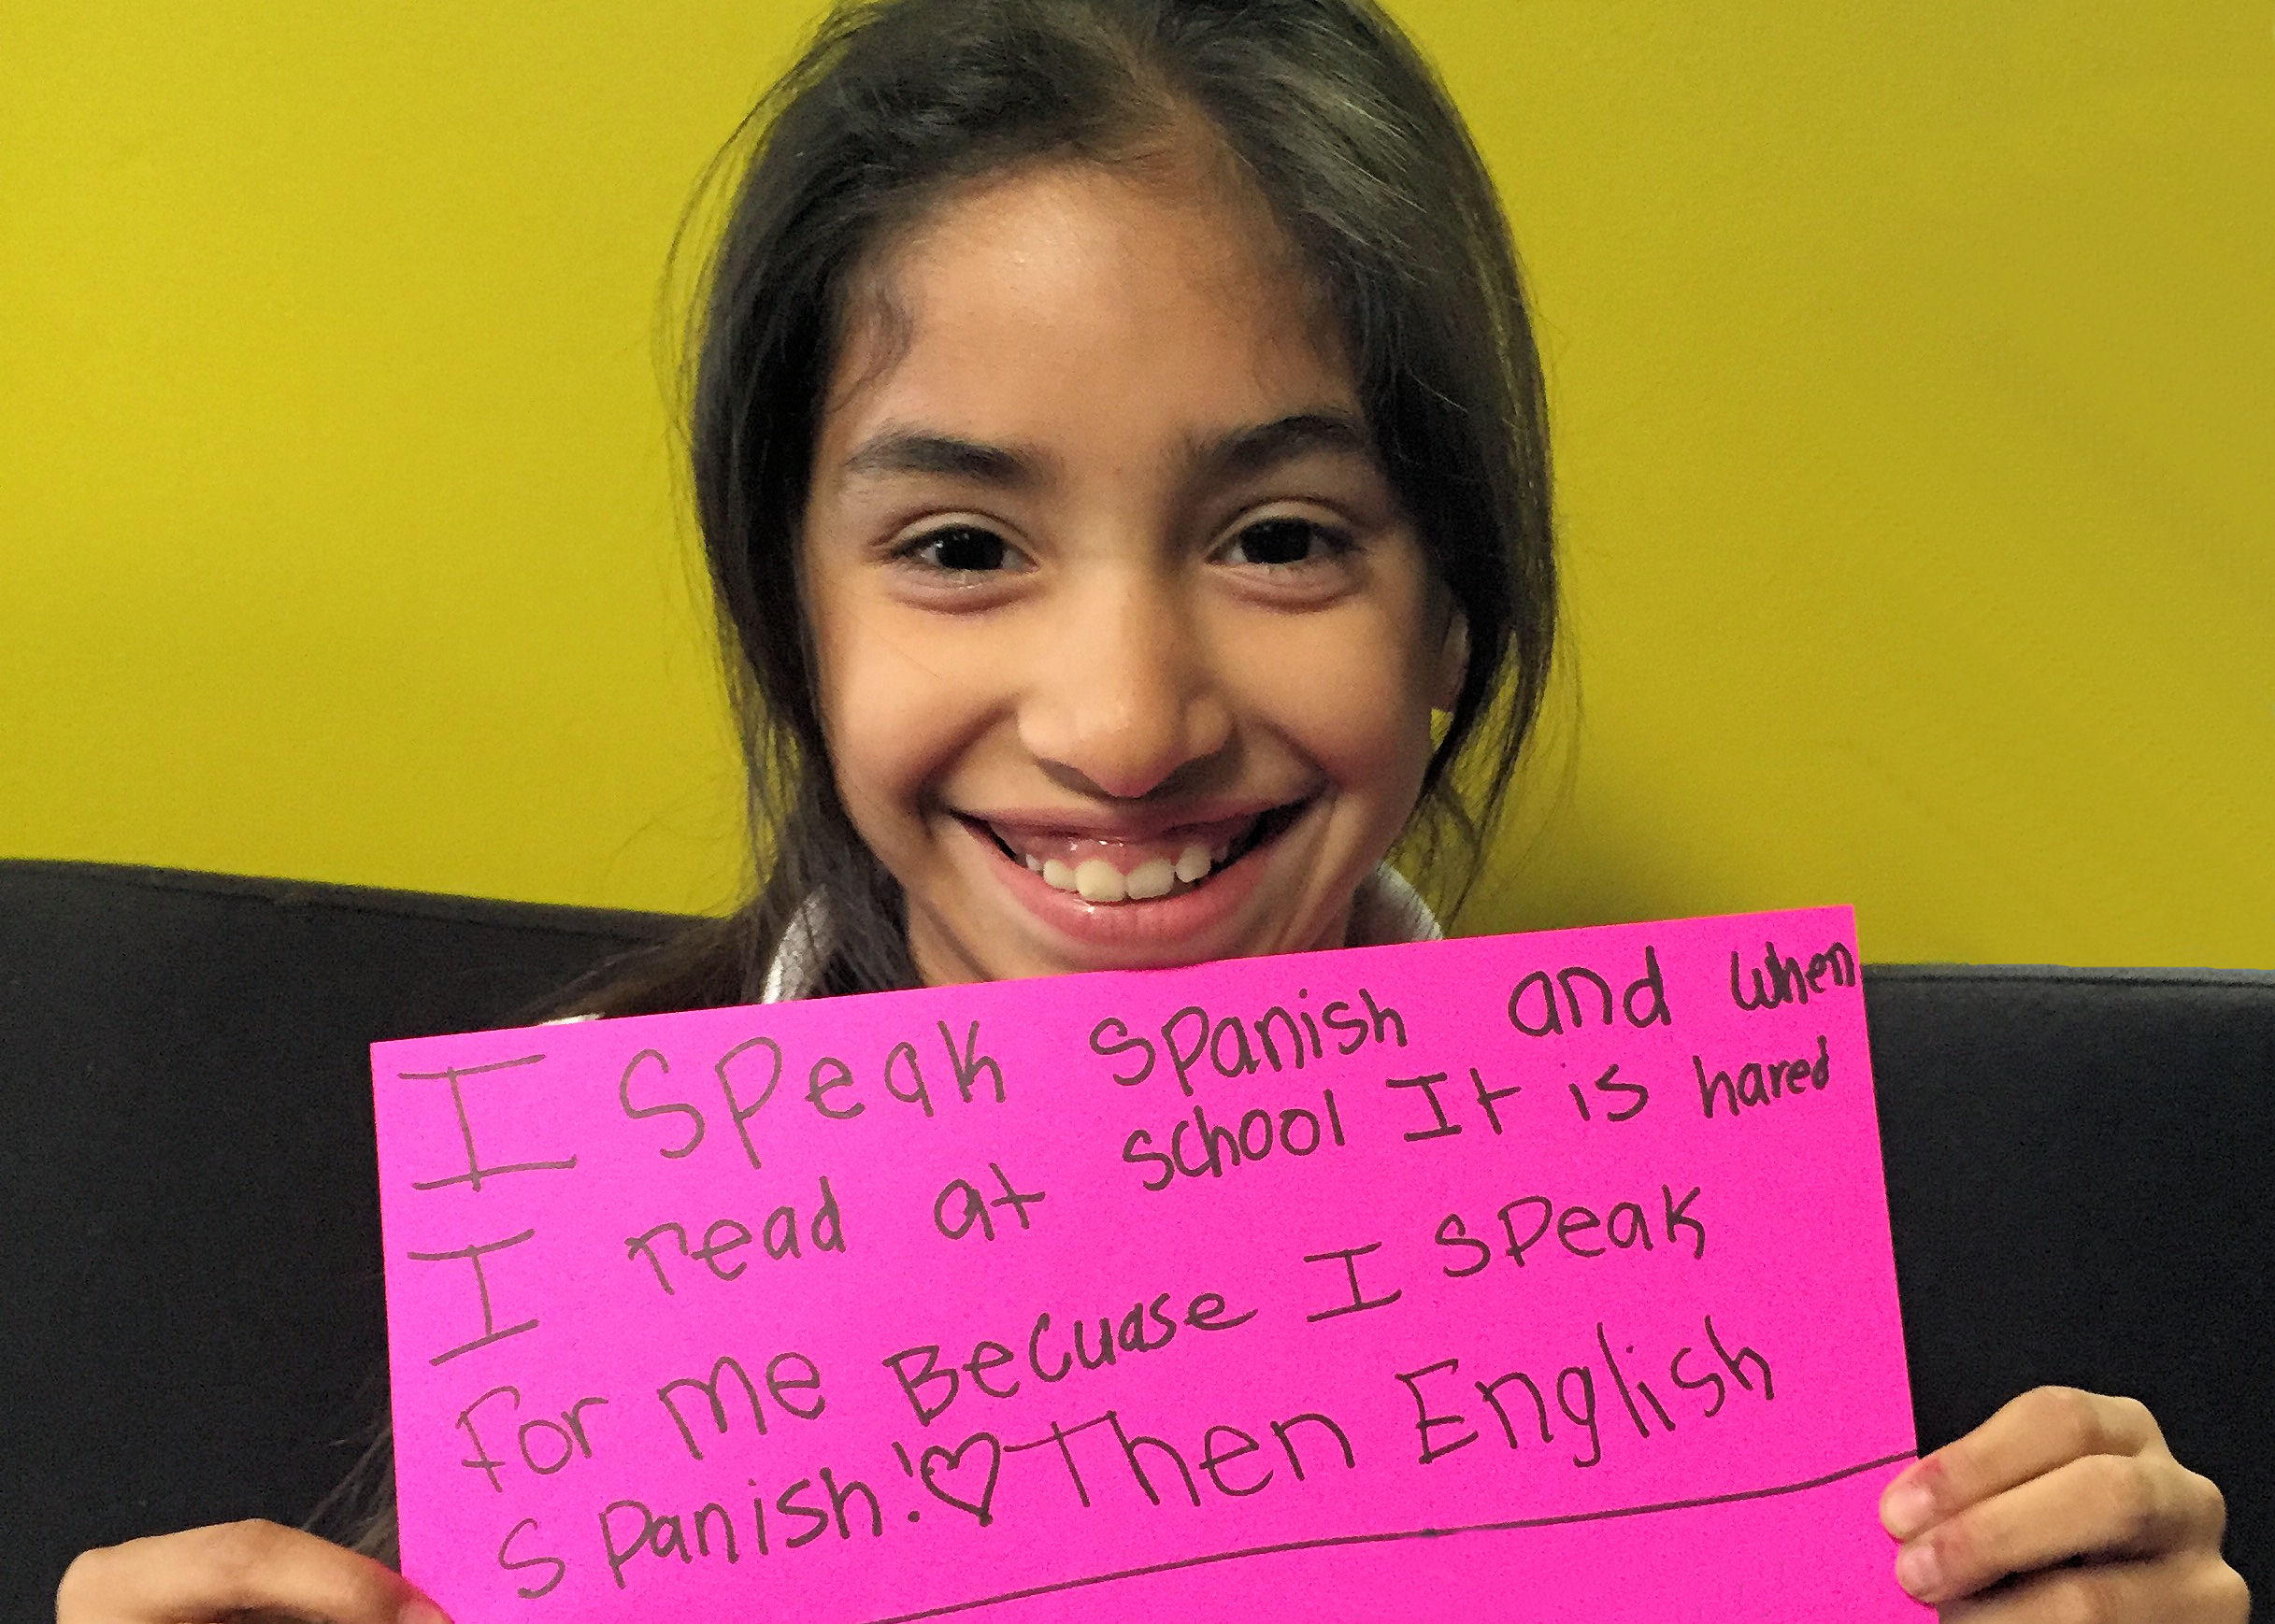 I speak spanish and when
I read at school It is hared
For me Becuase I speak
spanish!♡Then English